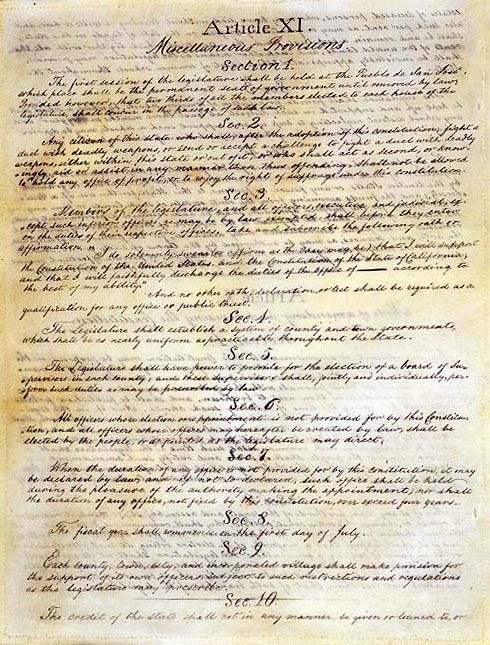 Article XI.
Miscellaneous Provisions.
Section 1.
The first session of the legislature shall be held at the Pueblo de San José
which place shall be the permanent seat of government until removed by law;
Provided however, that two thirds of all the members elected to each house of the
legislature, shall concur in the passage of such law.
Sec. 2.
Any citizen of this state who shall, after the adoption of this constitution, fight a
duel with deadly weapons, or send or accept a challenge to fight a duel with deadly
weapons, either within this state or out of it; or who shall act as second, or know-
ingly aid or assist in any manner those thus offending, shall not be allowed
to hold any office of profit, or to enjoy the right of suffrage under this constitution.
Sec. 3.
Members of the legislature, and all officers, executive and judicial, ex-
cept such inferior officers as may be by law exempted, shall before they enter
on the duties of their respective offices, take and subscribe the following oath or
affirmation.
"I do solemnly swear (or affirm as the case may be) that I will support
the Constitution of the United States, and the Constitution of the State of California;
and that I will faithfully discharge the duties of the office of — according to
the best of my ability."
And no other oath, declaration, or test shall be required as a
qualification for any office or public trust.
Sec. 4.
The Legislature shall establish a system of county and town governments,
which shall be as nearly uniform as practicable, throughout the State.
Sec. 5.
The Legislature shall have power to provide for the election of a board of Su-
pervisors in each county; and these supervisors shall, jointly and individually, per-
form such duties as may be prescribed by law.
Sec. 6.
All officers whose election or appointment is not provided for by this Constitu-
tion, and all officers whose offices may hereafter be created by law, shall be
elected by the people, or appointed as the legislature may direct.
Sec. 7.
When the duration of any office is not provided for by this constitution, it may
be declared by law, and if not so declared, such office shall be held
during the pleasure of the authority making the appointment; nor shall
the duration of any office, not fixed by this constitution, ever exceed four years.
Sec. 8.
The fiscal year shall commence on the first day of July.
Sec. 9.
Each county, town, city, and incorporated village shall make provision for
the support of its own officers, subject to such restrictions and regulations
as the legislature may prescribe.
Sec. 10.
The credit of the state shall not in any manner be given or loaned to, or